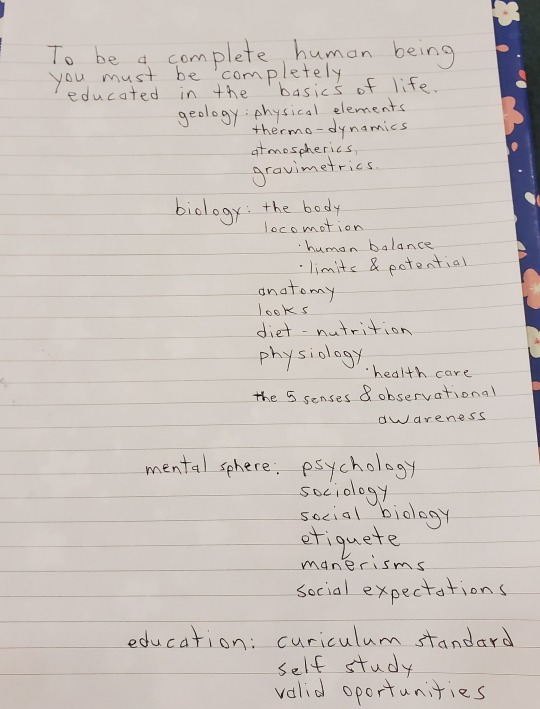 To be a complete human being
you must be completely
educated in the basics of life.
geology: physical elements
thermo-dynamics
atmospherics,
gravimetrics.
biology: the body
locomotion
· human balance
· limits & potential
anatomy
looks
diet - nutrition
physiology
· health care
the 5 senses & observational
awareness
mental sphere: psychology
sociology
social biology
etiquete
manerisms
social expectations
education: curiculum standard
self study
valid oportunities